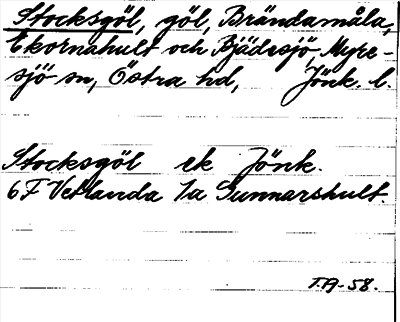 Stocksgöl, göl, Brändamåla,
Ekornahult och Bjädesjö, Myre-
sjö sn, Östra hd, Jönk. l.
Stocksgöl ek Jönk.
6F Vetlanda 1a Gunnarshult.
T.A-58.